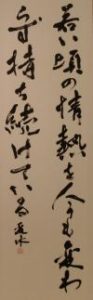 若い頃の情熱を今も変わ
らず持ち続けている